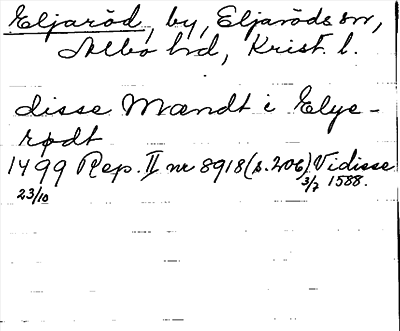 Eljaröd, by, Eljaröds sn,
Albo hd, Krist. l.
disse Mændt i Elye-
rødt
1499 Rep. II nr 8918 (s. 206) Vidisse
23/10 3/7 1588.